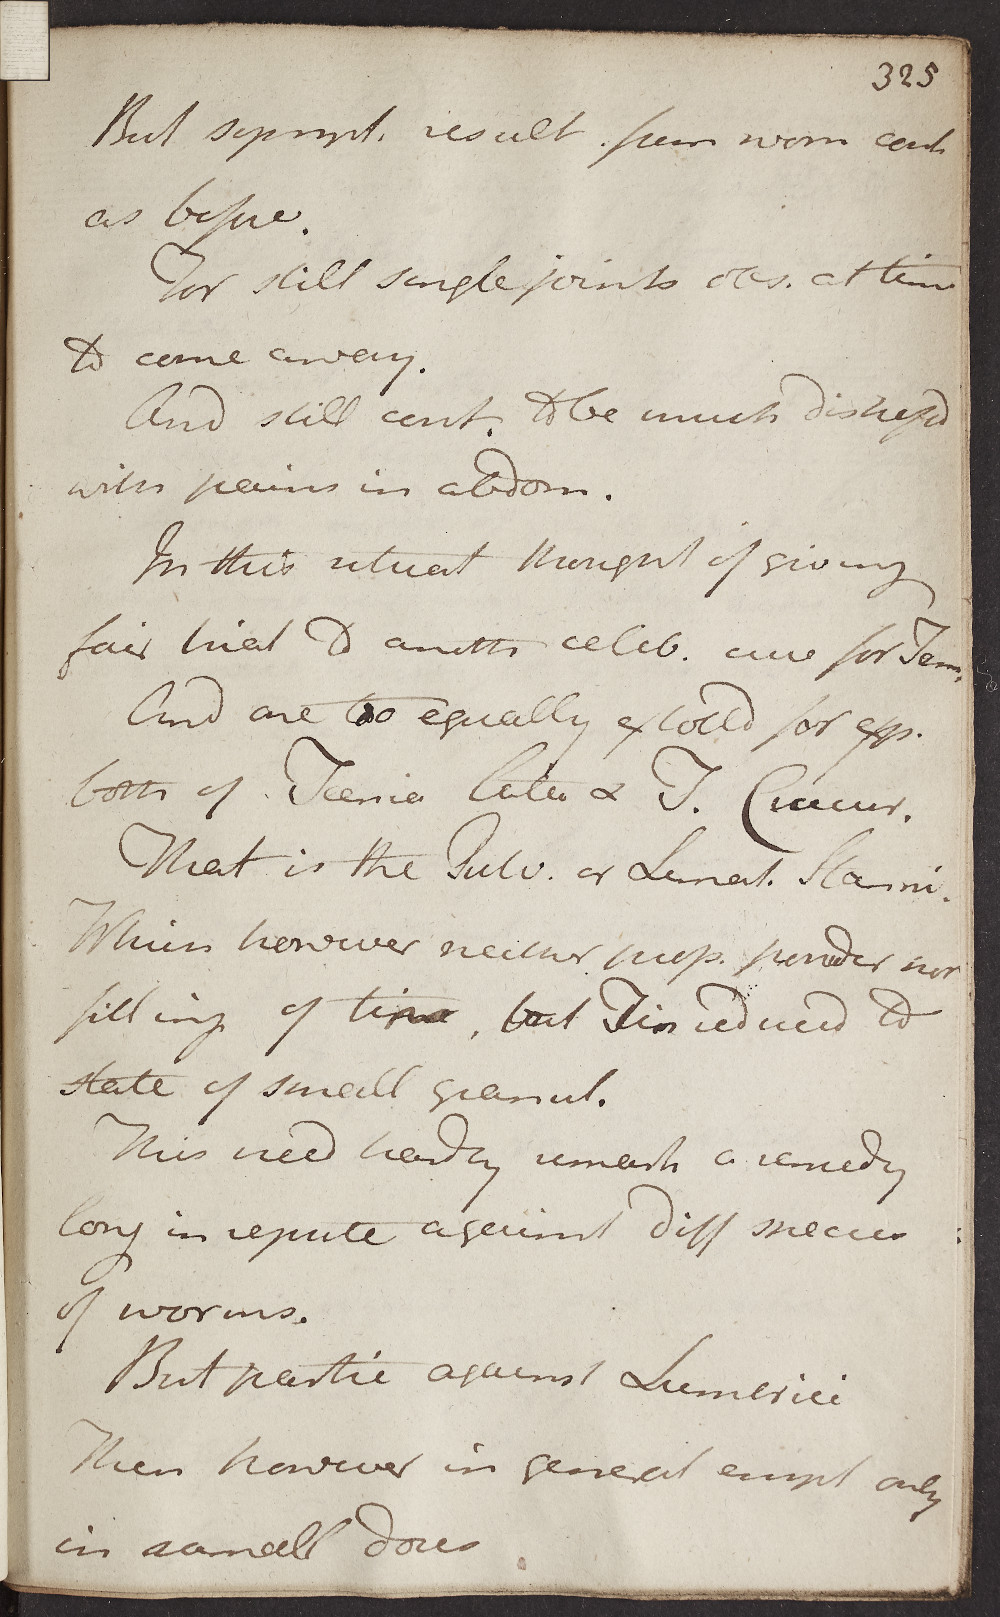 325
But sympt. result. from worm cont
as before.
For still single joints obs. at time
to come away.
And still cont. to be much distressd
with pains in abdom.
In this situat thought of giving
fair trial to anoth celeb. cure for Taen.
And one too equally extolld for exp.
both of Taenia Lata & T. Cucur.
That is the Pulv. or Limat. Stanni.
Which however neither prop. powder nor
filling of tin, but Tin reduced to
state of small granul.
This need hardly remark a remedy
long in repute against diff species
of worms.
But partic against Lumbrici
Then however in general empl only
in small doses